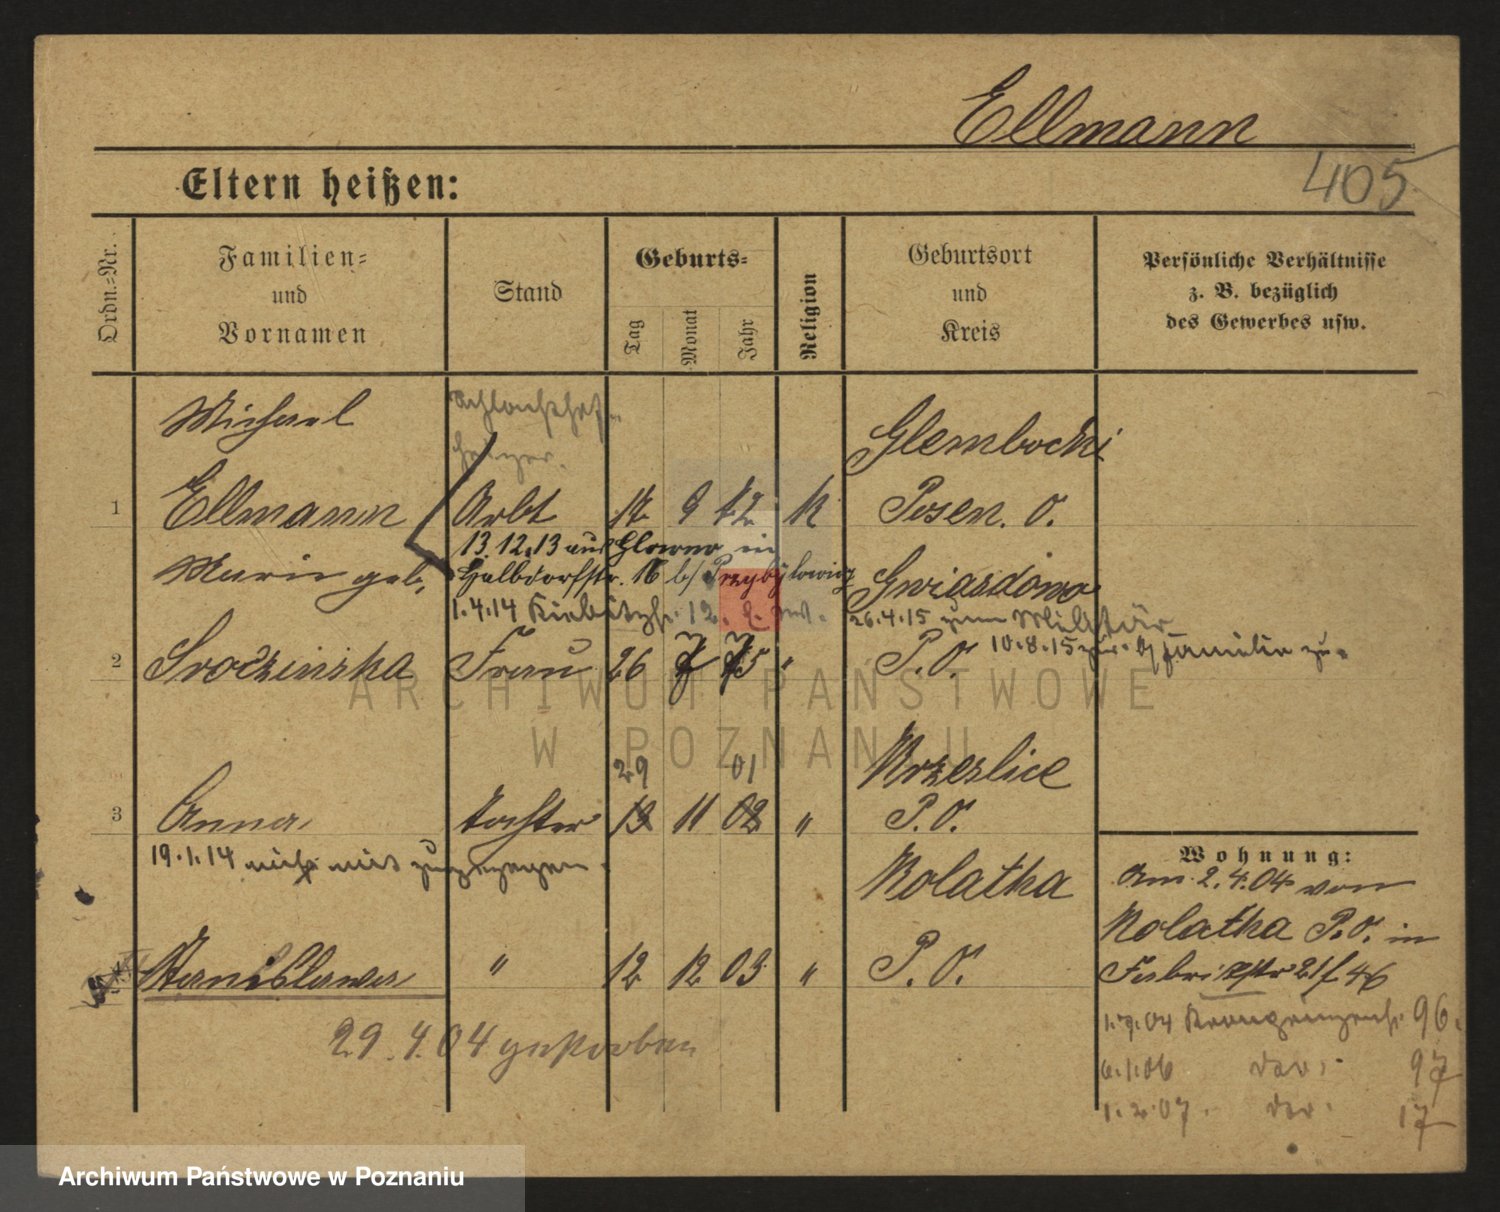 Ellmann
405
Eltern heißen:
Ordn.-Nr.
Familien-
und
Vornamen
Stand
Geburts-
Tag
Monat
Jahr
Religion
Geburtsort
und
Kreis
Persönliche Verhältnisse
z. B. bezüglich
des Gewerbes usw.
Michael
Glembocki
1 Ellmann Arbt 9 72 K Posen. O.
13.12.13 aus Glowno in
Marie geb. Halbdorfstr. 16 b/ Przybylowicz Gwiasdowo
1.4.14 12. 26.4.15 zum Militär
10.8.15 Familie
2 Srodzinska Frau 26 7 75 " P. O.
29 01
Wrzeslice
3 Anna Tochter 13 11 02 " P. O.
19.1.14 nicht mit zugezogen.
Kolatka
Stanislawa " 12 12 03 " P. O.
29.4.04 gestorben
Wohnung:
Am 2.4.04 von
Kolatka P. O. in
Fabrikstr 46
1.7.04 Kronprinzenstr. 96.
6.1.06 97
1.2.07. 17
ARCHIWUM PAŃSTWOWE
W POZNANIU
Archiwum Państwowe w Poznaniu